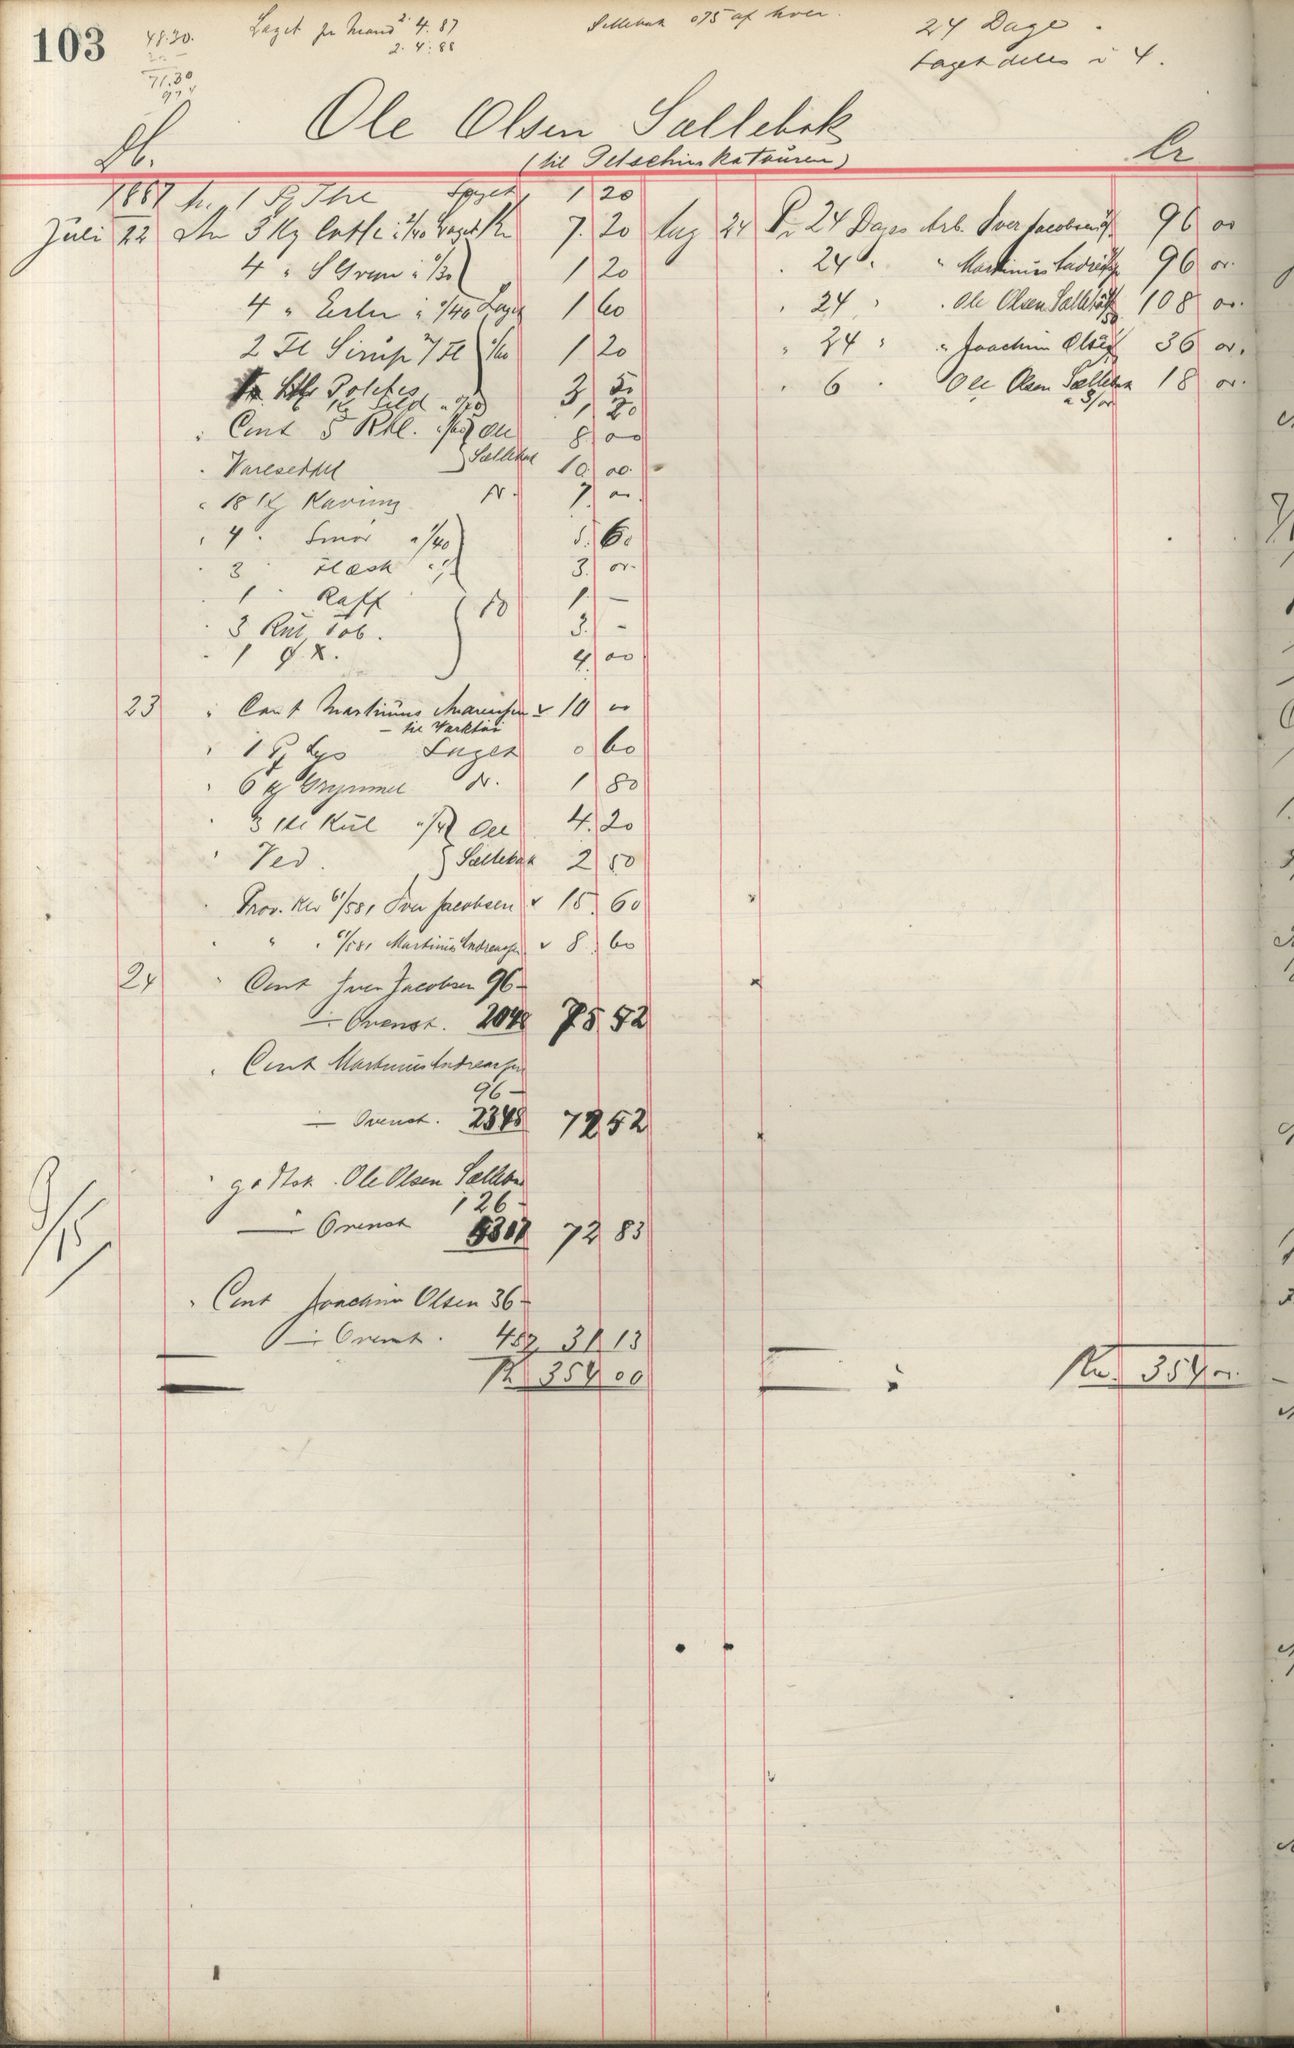 103
48.30.
71.30
Laget pr Mand 2. 4. 87
2. 4. 88
Sællebak 075 af hver.
24 Dage.
Laget deles i 4.
Ole Olsen Sællebak
(til Petschinskatouren)
Db.
Cr
1887 An 1 Pg The Laget 1 20
Juli 22 An 3 Kg Caffe à 2/40 Laget Kr 7. 20
4 " S Gryn à 0/30 1 20
4 " Erter à 0/40 Laget 1 60
2 Fl Sirup 0/60 1 20
Potetes 3 50
Kg Sild 1 20
" Cont 5 Rbl. Ole 8 00
" Vareseddel Sællebak 10. 00
" 18 Kg Kavring do. 7. 00
" 4 " Smør à 1/40 5. 60
" 3 " Flesk 3. 00
" 1 " Raff 1. —
" 3 Rul Tob. do 3. —
" 1 4. 00
23 " Cont Martinus Andreassen 10 00
— til Værktøi
" 1 Pk Lys Laget 0 60
" 6 Kg Grynmel do. 1 80
" 3 Kul Ole 4. 20
" Ved. Sællebak 2 50
" Prov. Rev 61/581 Iver Jacobsen 15. 60
" " " 61/581 Martinus Andreassen 8. 60
24 " Cont Iver Jacobsen 96—
÷ Ovenst. 2048 75 52
" Cont Martinus Andreassen
96—
÷ Ovenst. 2348 72 52
" godtsk. Ole Olsen Sællebak
126—
÷ Ovenst 5317 72 83
9/15
" Cont Joachim Olsen 36—
÷ Ovenst. 487 31 13
Kr 354 00
Aug 24 Pr 24 Dages Arb. Iver Jacobsen 96 00
" 24 " " Martinus Andreassen 96 00.
" 24 " " Ole Olsen Sællebak 108 00.
" 24 " " Joachim Olsen 36 00.
" 6 " Ole Olsen Sællebak 18 00.
à 3/00
Kr. 354 00.